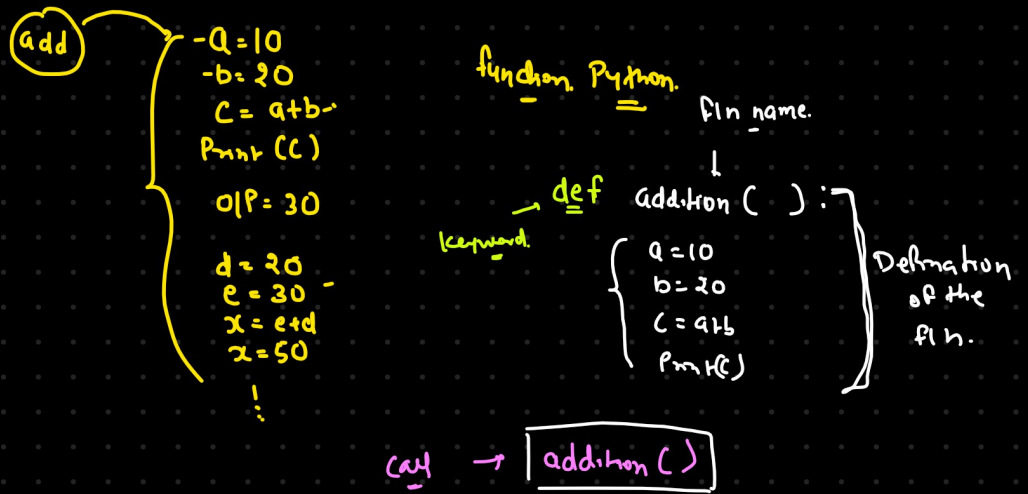 add
-a=10
-b=20
C = a+b-
Print (C)
O/P = 30
d = 20
e = 30 -
x = e+d
x = 50
function Python.
f/n name.
def addition ( ) :
keyword.
a = 10
b = 20
C = a+b
Print(C)
Defination
of the
f/n.
call → addition ( )